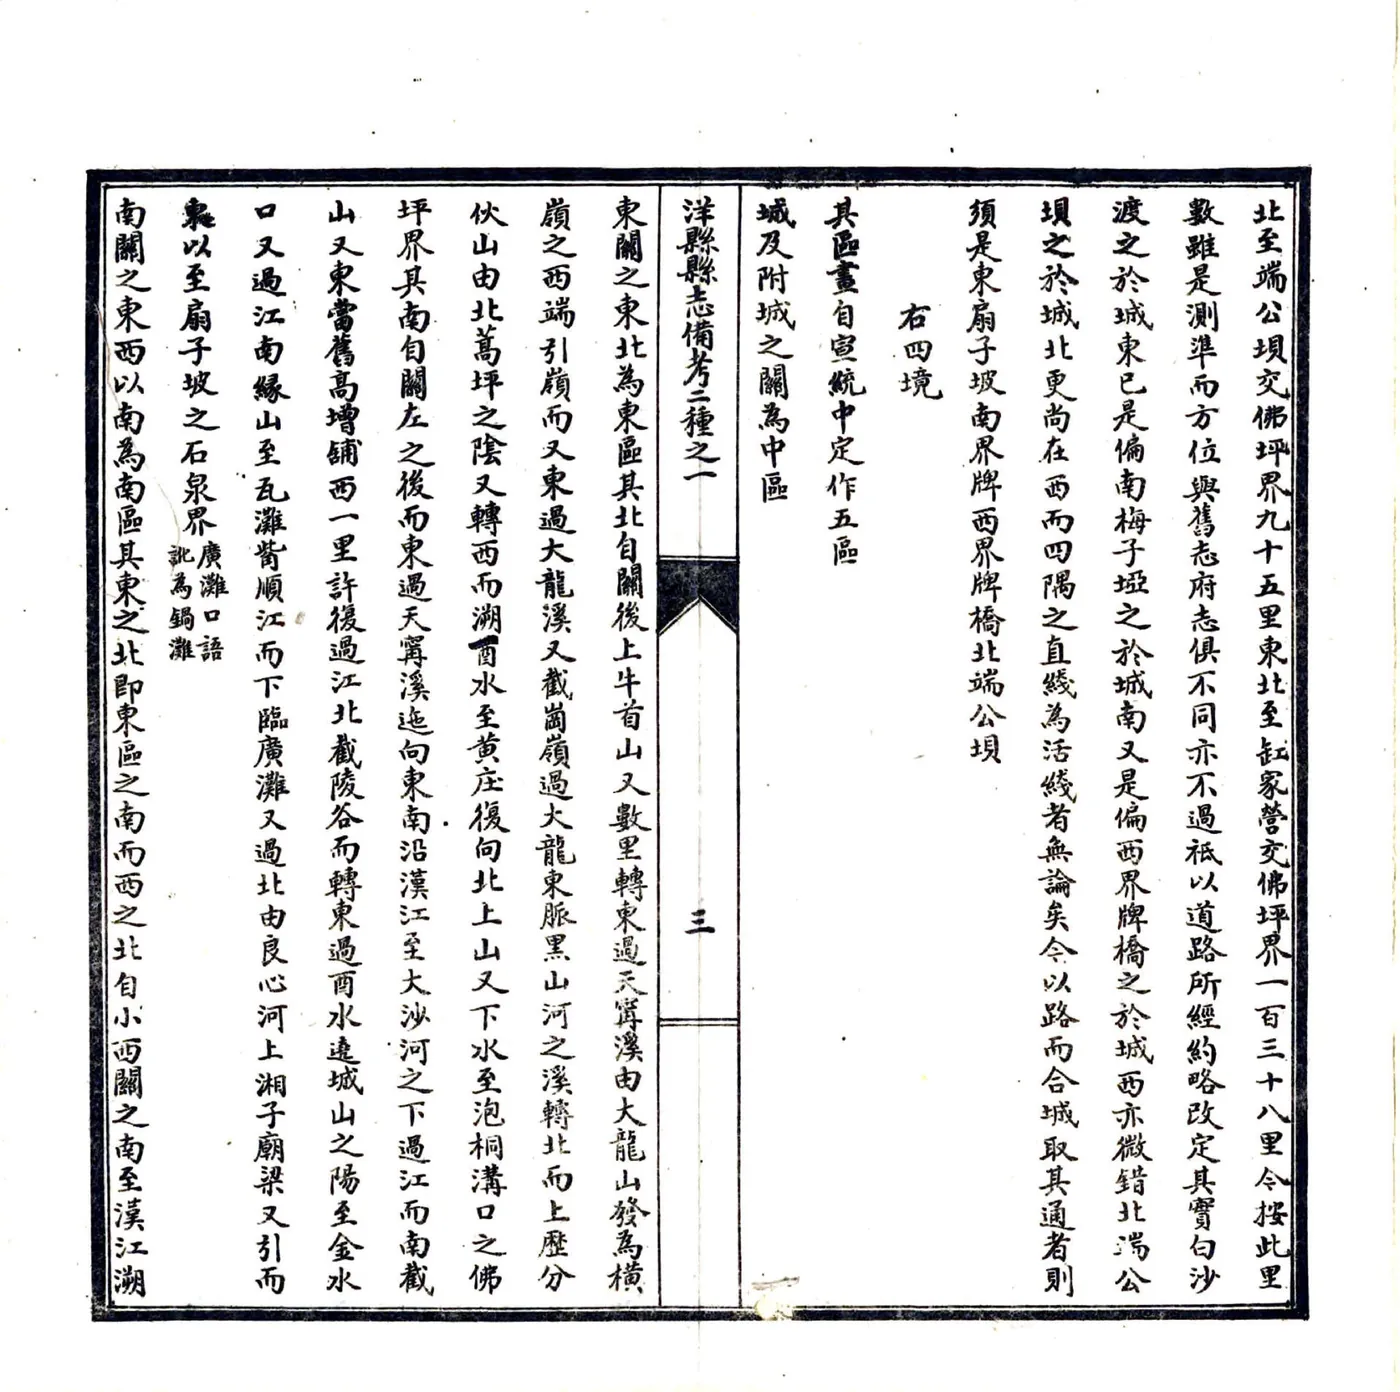 北至端公垻交佛坪界九十五里東北至缸家營交佛坪界一百三十八里今按此里
數雖是測準而方位與舊志府志俱不同亦不過祗以道路所經約略改定其實白沙
渡之於城東已是偏南梅子埡之於城南又是偏西界牌橋之於城西亦微錯北端公
垻之於城北更尚在西而四隅之直綫為活綫者無論矣今以路而合城取其通者則
須是東扇子坡南界牌西界牌橋北端公垻
右四境
其區畫自宣統中定作五區
城及附城之關為中區
洋縣縣志備考二種之一
三
東關之東北為東區其北自關後上牛首山又數里轉東過天寗溪由大龍山發為橫
嶺之西端引嶺而又東過大龍溪又截崗嶺過大龍東脈黑山河之溪轉北而上歷分
伙山由北蒿坪之陰又轉西而溯酉水至黄庄復向北上山又下水至泡桐溝口之佛
坪界其南自關左之後而東過天寗溪迤向東南沿漢江至大沙河之下過江而南截
山又東當舊高增舖西一里許復過江北截陵谷而轉東過酉水遶城山之陽至金水
口又過江南緣山至瓦灘觜順江而下臨廣灘又過北由良心河上湘子廟梁又引而
東以至扇子坡之石泉界廣灘口語
訛為鍋灘
南關之東西以南為南區其東之北即東區之南而西之北自小西關之南至漢江溯